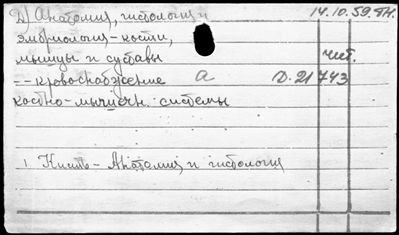 2) Анатомия, гистология и 14.10.59.
эмбриология - кости,
мышцы и суставы чит.
-- кровоснабжение а D.21743
костно-мышечн. системы
1. Кисть - Анатомия и гистология